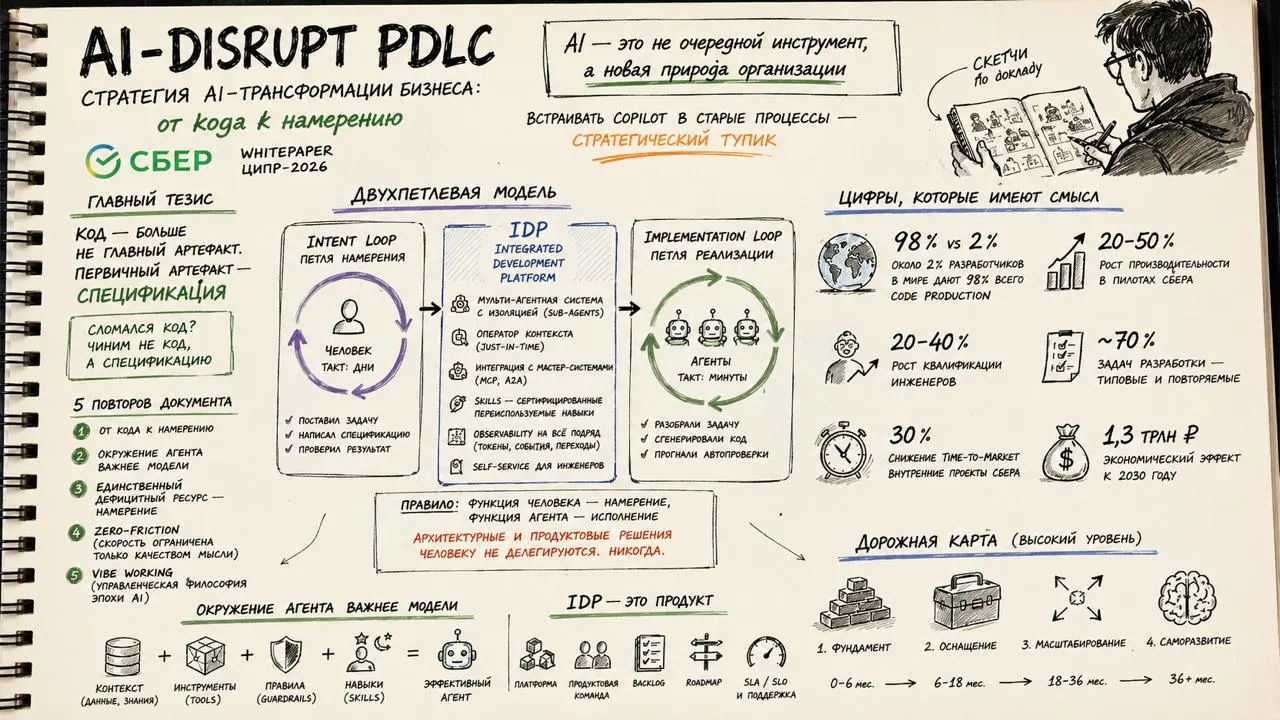 AI-DISRUPT PDLC
СТРАТЕГИЯ AI-ТРАНСФОРМАЦИИ БИЗНЕСА:
от кода к намерению
СБЕР
WHITEPAPER
ЦИПР-2026
AI — это не очередной инструмент,
а новая природа организации
ВСТРАИВАТЬ COPILOT В СТАРЫЕ ПРОЦЕССЫ —
СТРАТЕГИЧЕСКИЙ ТУПИК
СКЕТЧИ
по докладу
ГЛАВНЫЙ ТЕЗИС
КОД — БОЛЬШЕ
НЕ ГЛАВНЫЙ АРТЕФАКТ.
ПЕРВИЧНЫЙ АРТЕФАКТ —
СПЕЦИФИКАЦИЯ
СЛОМАЛСЯ КОД?
ЧИНИМ НЕ КОД,
А СПЕЦИФИКАЦИЮ
5 ПОВТОРОВ ДОКУМЕНТА
1 ОТ КОДА К НАМЕРЕНИЮ
2 ОКРУЖЕНИЕ АГЕНТА
ВАЖНЕЕ МОДЕЛИ
3 ЕДИНСТВЕННЫЙ
ДЕФИЦИТНЫЙ РЕСУРС —
НАМЕРЕНИЕ
4 ZERO-FRICTION
(СКОРОСТЬ ОГРАНИЧЕНА
ТОЛЬКО КАЧЕСТВОМ МЫСЛИ)
5 VIBE WORKING
(УПРАВЛЕНЧЕСКАЯ ФИЛОСОФИЯ
ЭПОХИ AI)
ДВУХПЕТЛЕВАЯ МОДЕЛЬ
INTENT LOOP
ПЕТЛЯ НАМЕРЕНИЯ
ЧЕЛОВЕК
ТАКТ: ДНИ
✓ ПОСТАВИЛ ЗАДАЧУ
✓ НАПИСАЛ СПЕЦИФИКАЦИЮ
✓ ПРОВЕРИЛ РЕЗУЛЬТАТ
IDP
INTEGRATED
DEVELOPMENT
PLATFORM
МУЛЬТИ-АГЕНТНАЯ СИСТЕМА
С ИЗОЛЯЦИЕЙ (SUB-AGENTS)
ОПЕРАТОР КОНТЕКСТА
(JUST-IN-TIME)
ИНТЕГРАЦИЯ С МАСТЕР-СИСТЕМАМИ
(MCP, A2A)
SKILLS — СЕРТИФИЦИРОВАННЫЕ
ПЕРЕИСПОЛЬЗУЕМЫЕ НАВЫКИ
OBSERVABILITY НА ВСЁ ПОДРЯД
(ТОКЕНЫ, СОБЫТИЯ, ПЕРЕХОДЫ)
SELF-SERVICE ДЛЯ ИНЖЕНЕРОВ
IMPLEMENTATION LOOP
ПЕТЛЯ РЕАЛИЗАЦИИ
АГЕНТЫ
ТАКТ: МИНУТЫ
✓ РАЗОБРАЛИ ЗАДАЧУ
✓ СГЕНЕРИРОВАЛИ КОД
✓ ПРОГНАЛИ АВТОПРОВЕРКИ
ПРАВИЛО: ФУНКЦИЯ ЧЕЛОВЕКА — НАМЕРЕНИЕ,
ФУНКЦИЯ АГЕНТА — ИСПОЛНЕНИЕ
АРХИТЕКТУРНЫЕ И ПРОДУКТОВЫЕ РЕШЕНИЯ
ЧЕЛОВЕКУ НЕ ДЕЛЕГИРУЮТСЯ. НИКОГДА.
ЦИФРЫ, КОТОРЫЕ ИМЕЮТ СМЫСЛ
98% vs 2%
ОКОЛО 2% РАЗРАБОТЧИКОВ
В МИРЕ ДАЮТ 98% ВСЕГО
CODE PRODUCTION
20-50%
РОСТ ПРОИЗВОДИТЕЛЬНОСТИ
В ПИЛОТАХ СБЕРА
20-40%
РОСТ КВАЛИФИКАЦИИ
ИНЖЕНЕРОВ
~70%
ЗАДАЧ РАЗРАБОТКИ —
ТИПОВЫЕ И ПОВТОРЯЕМЫЕ
30%
СНИЖЕНИЕ TIME-TO-MARKET
ВНУТРЕННИЕ ПРОЕКТЫ СБЕРА
$
1,3 ТРЛН ₽
ЭКОНОМИЧЕСКИЙ ЭФФЕКТ
К 2030 ГОДУ
ОКРУЖЕНИЕ АГЕНТА ВАЖНЕЕ МОДЕЛИ
+ + + =
КОНТЕКСТ
(ДАННЫЕ, ЗНАНИЯ)
ИНСТРУМЕНТЫ
(TOOLS)
ПРАВИЛА
(GUARDRAILS)
НАВЫКИ
(SKILLS)
ЭФФЕКТИВНЫЙ
АГЕНТ
IDP — ЭТО ПРОДУКТ
ПЛАТФОРМА
ПРОДУКТОВАЯ
КОМАНДА
BACKLOG
ROADMAP
SLA / SLO
И ПОДДЕРЖКА
ДОРОЖНАЯ КАРТА (ВЫСОКИЙ УРОВЕНЬ)
1. ФУНДАМЕНТ
2. ОСНАЩЕНИЕ
3. МАСШТАБИРОВАНИЕ
4. САМОРАЗВИТИЕ
0-6 мес. → 6-18 мес. → 18-36 мес. → 36+ мес.